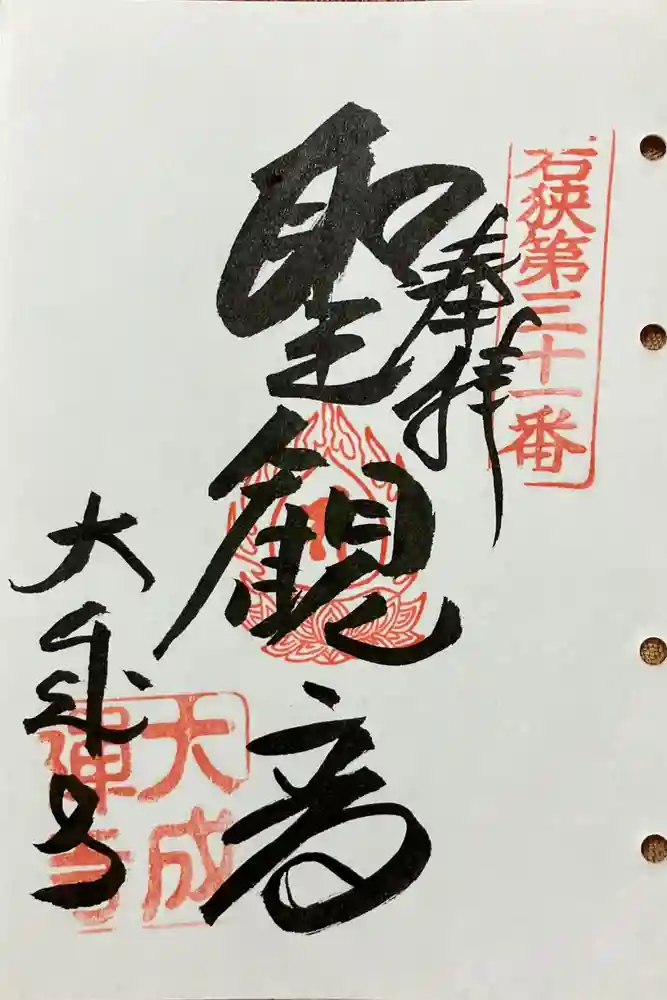 若狭第三十一番
奉拝
聖観音
大成寺
大成
禅寺